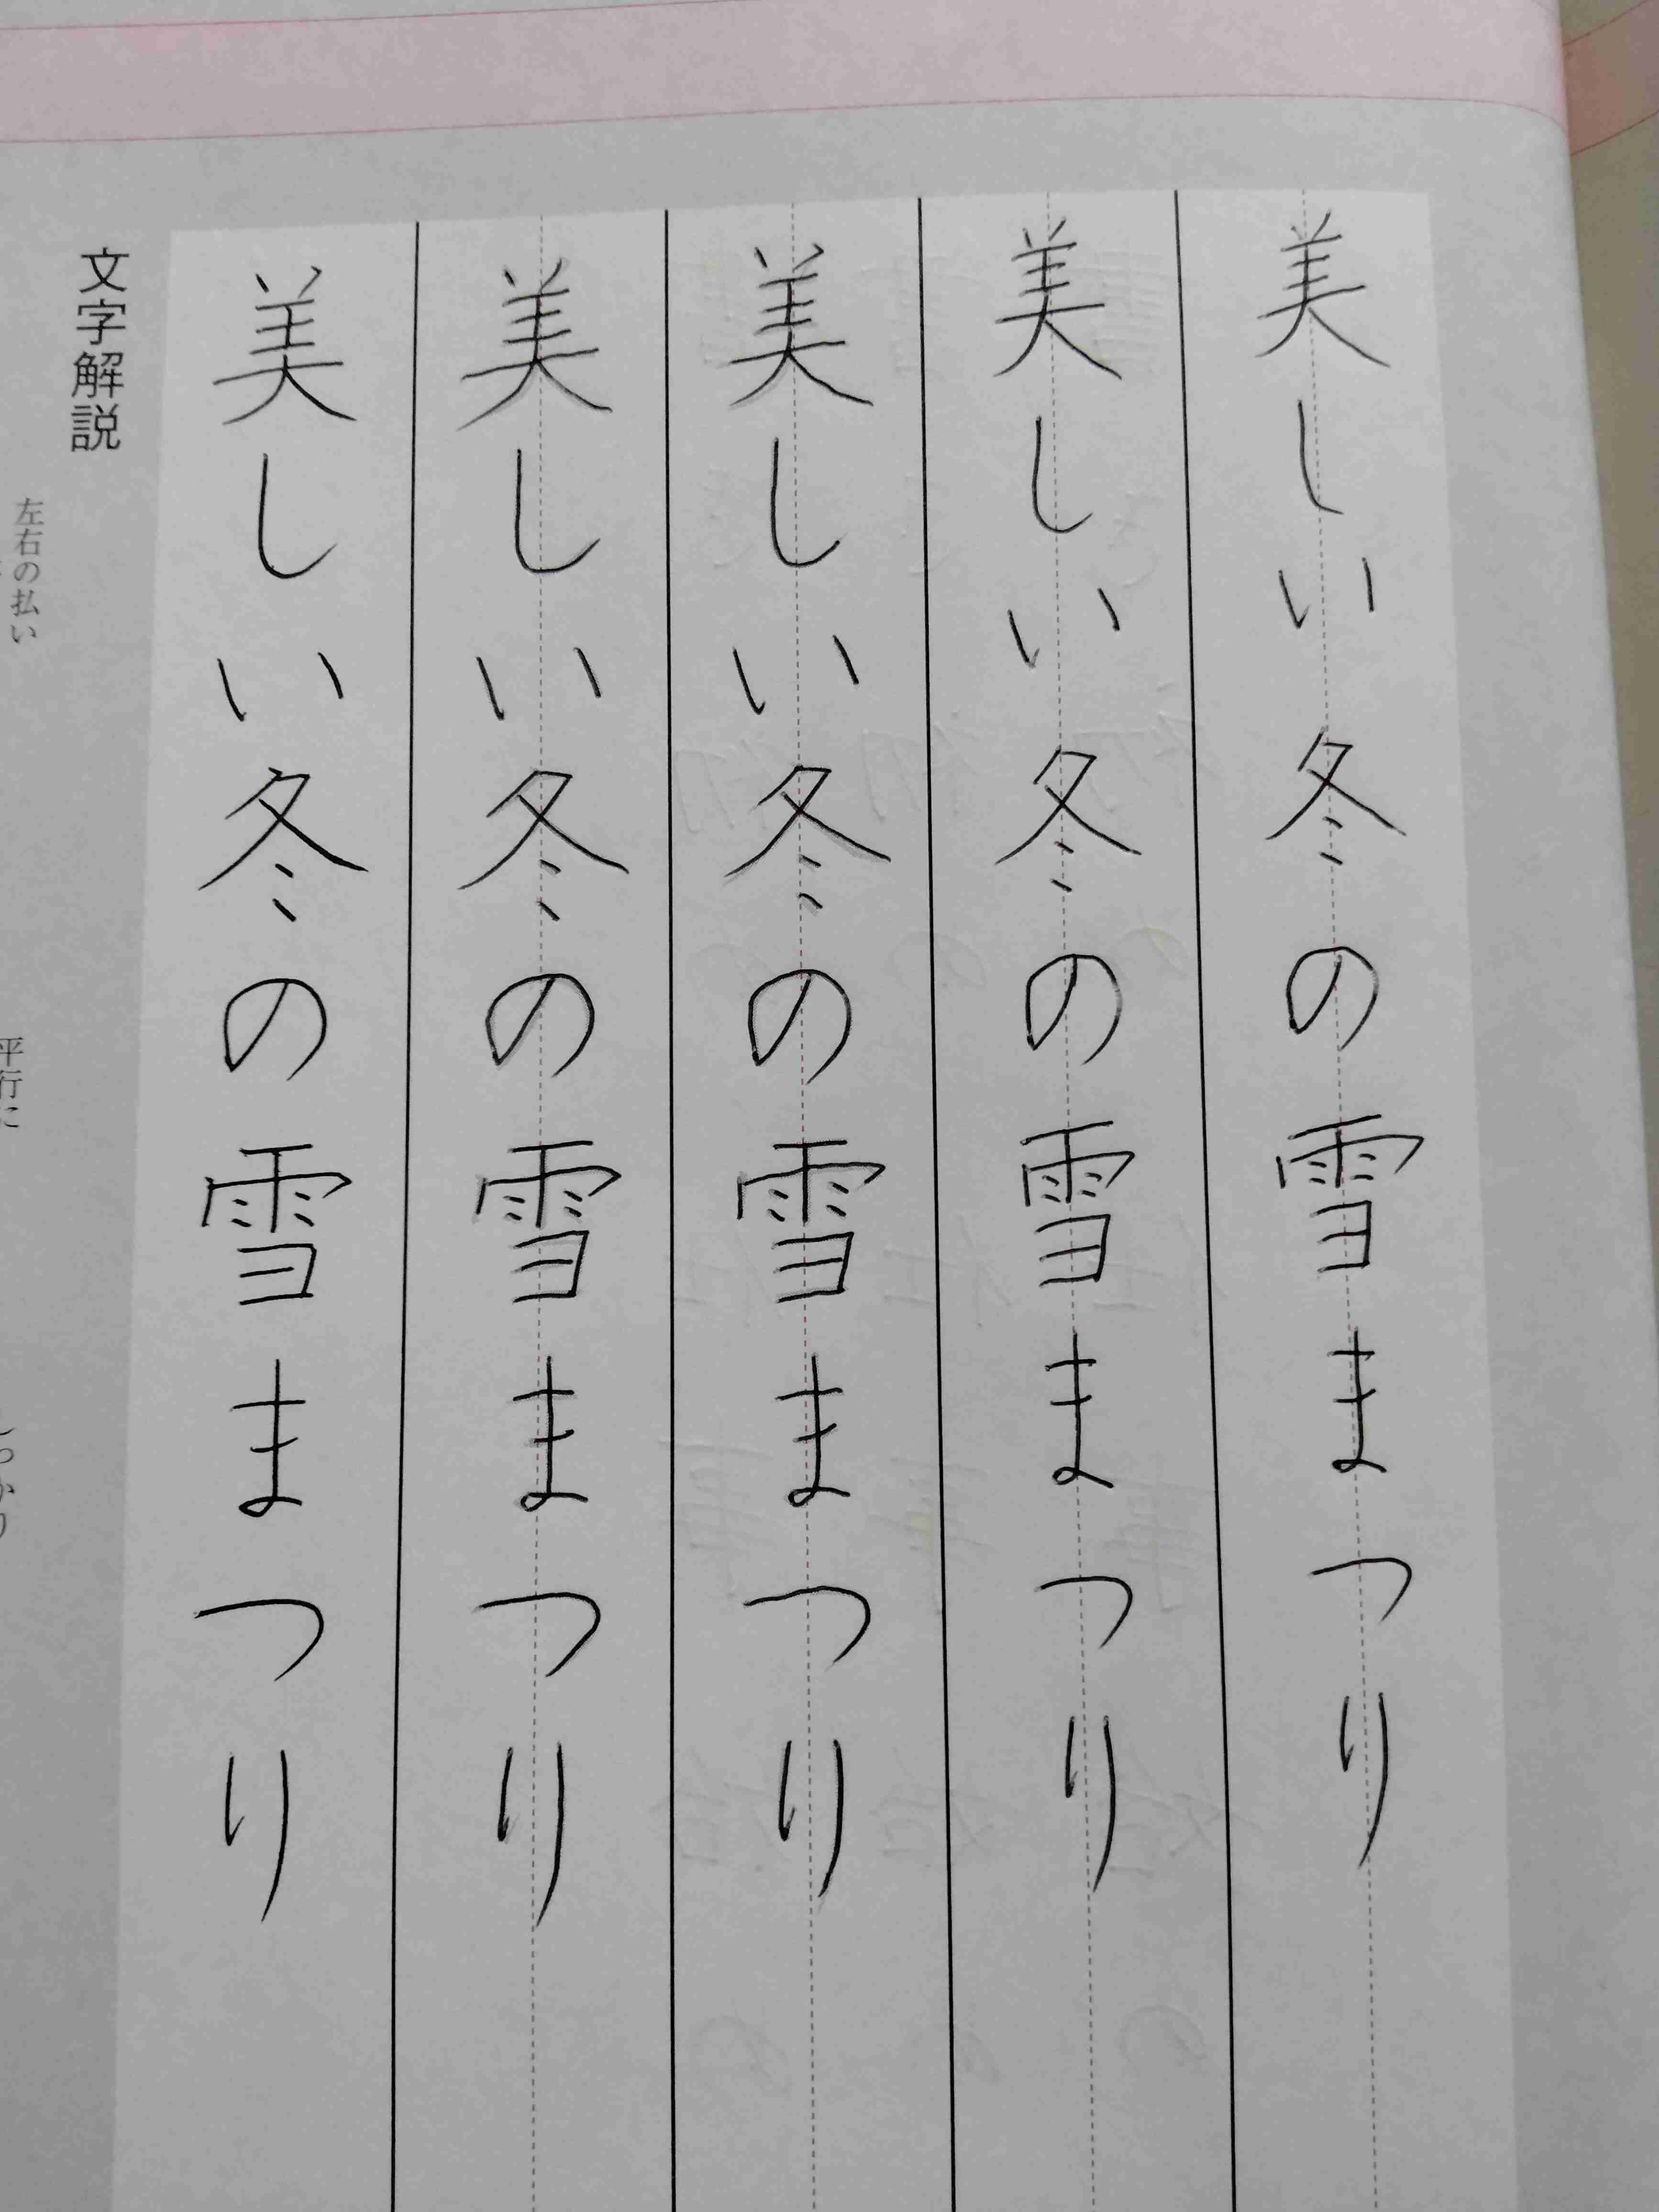 美しい冬の雪まつり
美しい冬の雪まつり
美しい冬の雪まつり
美しい冬の雪まつり
美しい冬の雪まつり
文字解説
左右の払い
平行に
しっかり